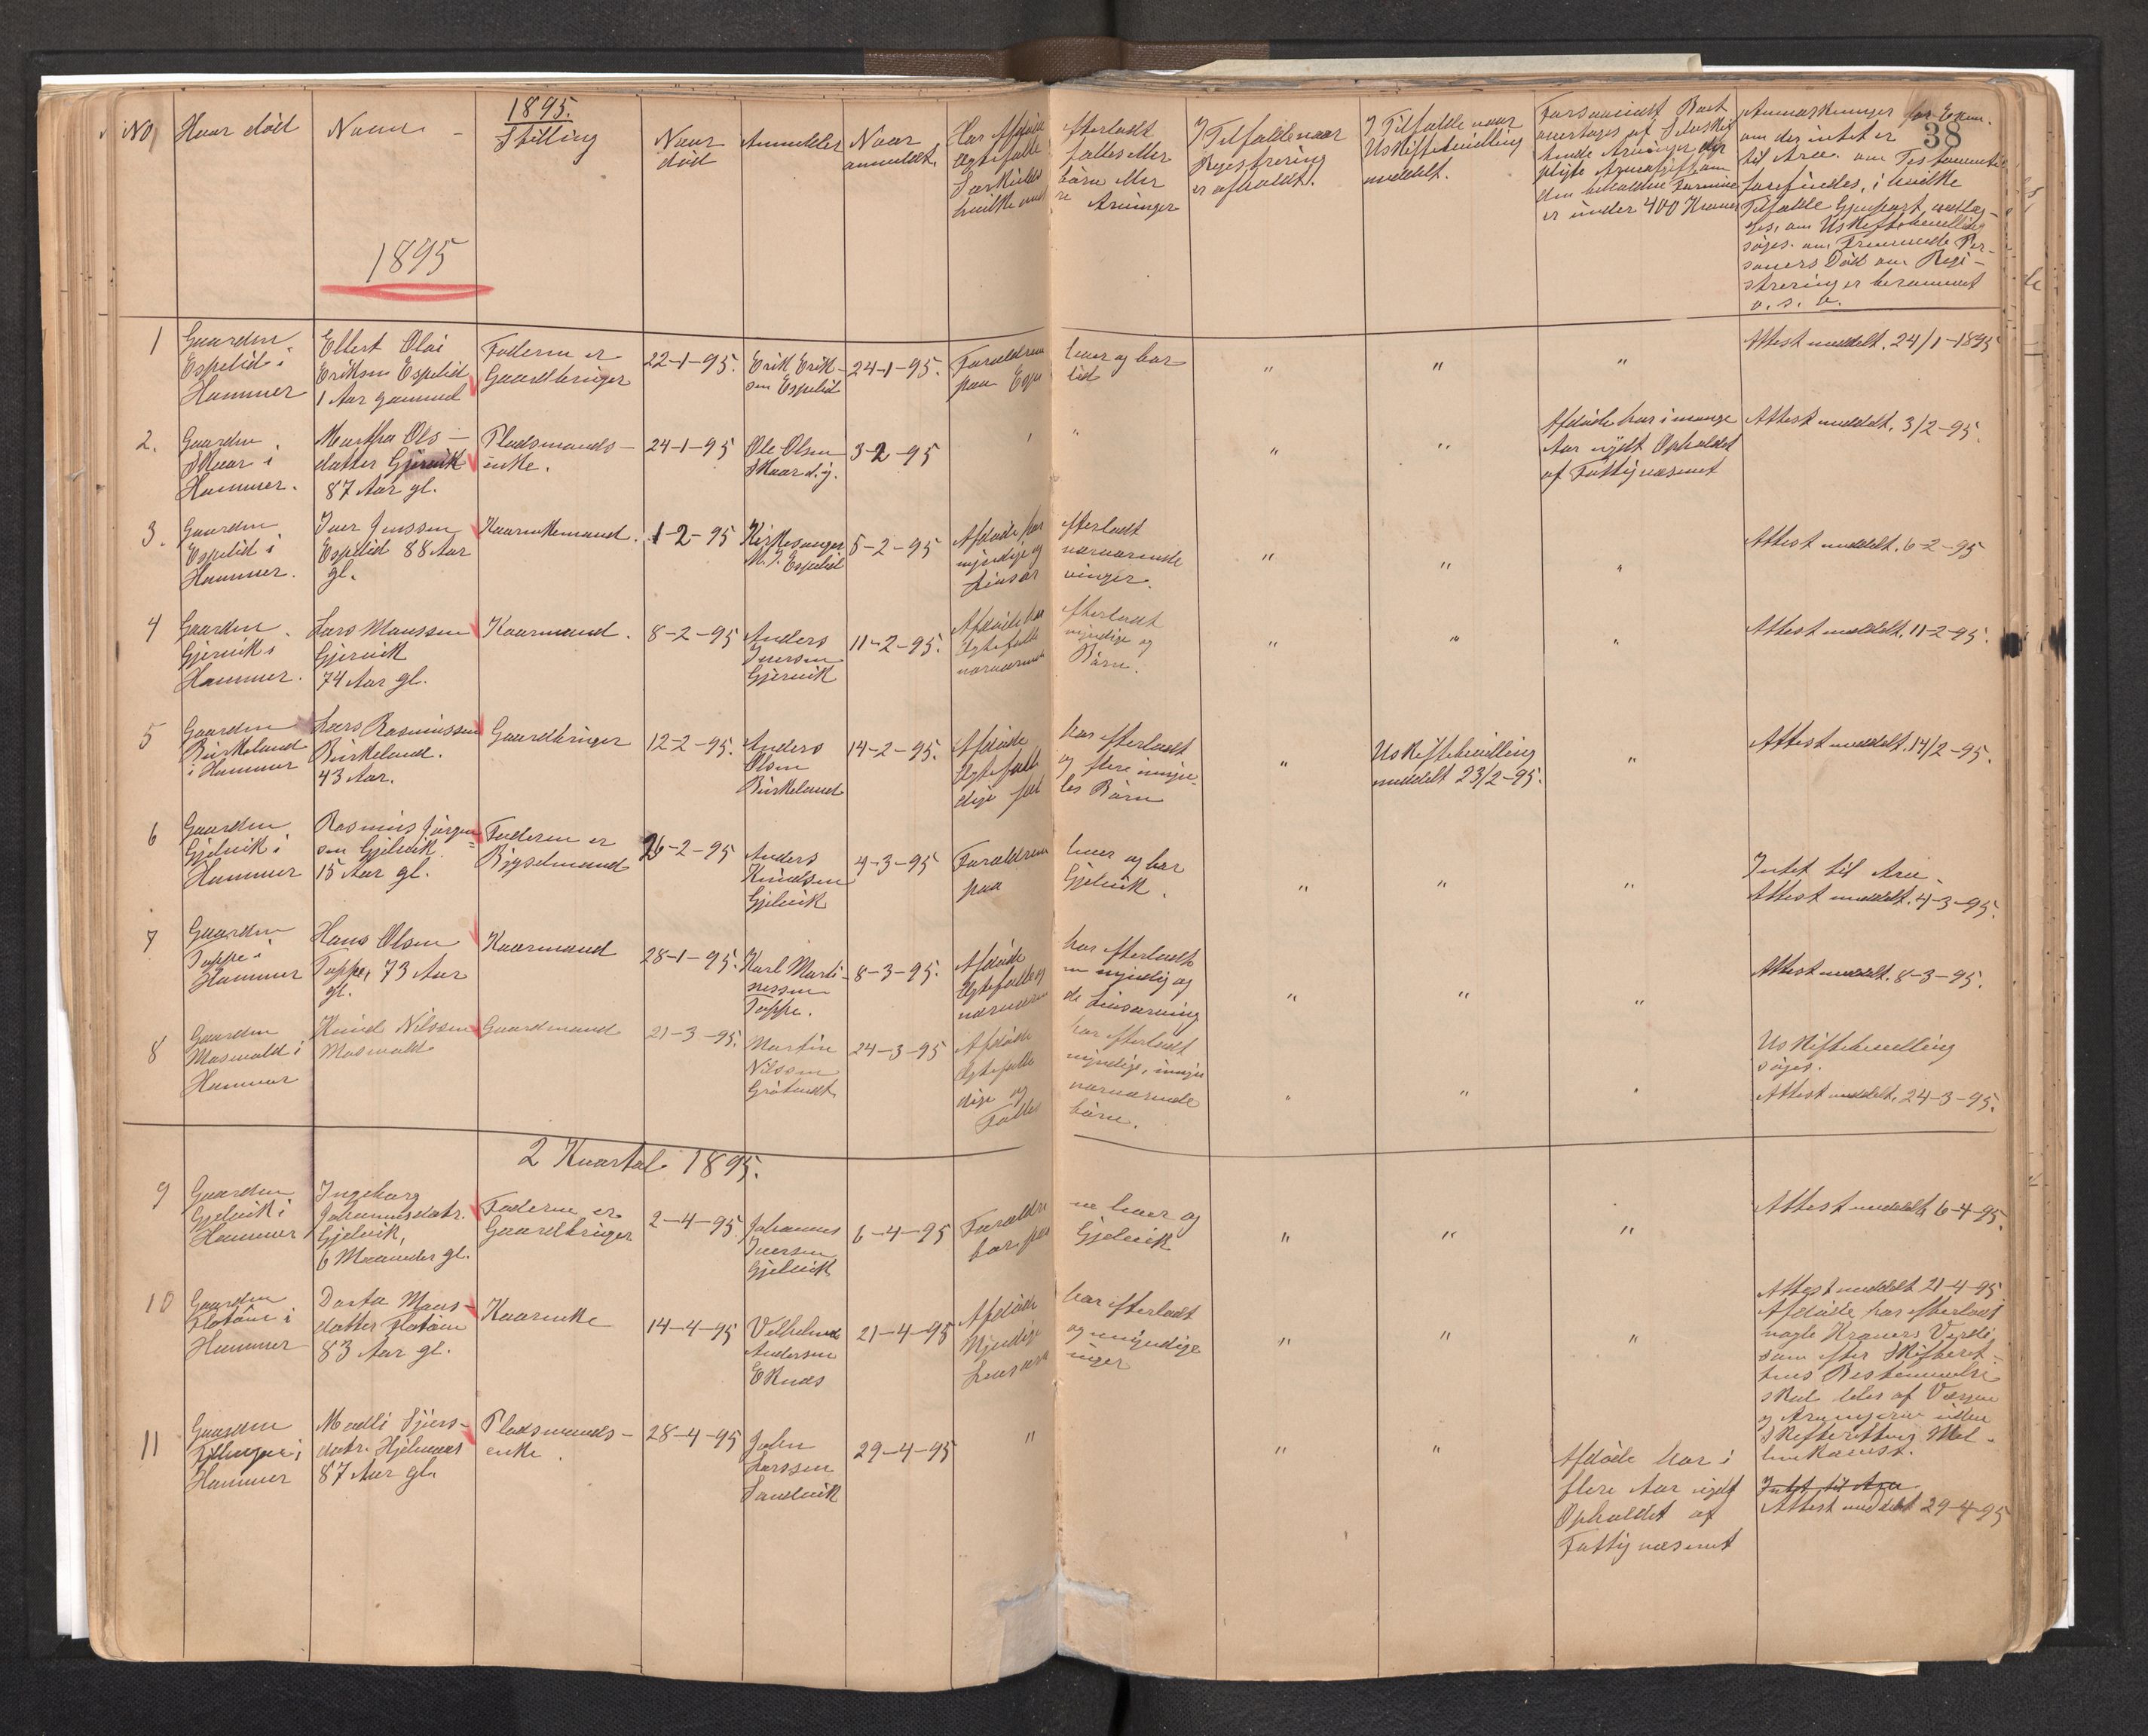 1895.
38
No
Hvor död
Navn
Stilling
Naar
död
Anmelder
Naar
anmeldt.
Har Afdöde efterladt
Egtefælle fælles eller
Særkulds börn eller
hvilke andre Arvinger
I Tilfælde naar
Registrering
er afholdt.
I Tilfælde naar
Uskiftebevilling
meddelt.
Forsaavidt Boet
overtages af Selvskif
tende Arvinger
pligte Arveafgift om
den beholdne Formue
er under 400 Kroner
Anmærkninger for Exem.
om der intet er
til Arv. om Testamente
forefindes, i hvilke
Tilfælde Gjenpart vedlæg-
ges, om Uskiftebevilling
söges. om Fremmede Per-
soners Död om Regi-
strering er berammet
o. s. v.
1895
1
Gaarden
Espelid i
Hammer
Ellert Olai
Eriksen Espelid
1 Aar gammel
Faderen er
Gaardbruger
22-1-95.
Erik Erik-
sen Espelid
24-1-95.
Forældrene lever og bor
paa Espelid
"
"
"
Attest meddelt. 24/1-1895
2.
Gaarden
Skaar i
Hammer.
Martha Ols-
datter Gjervik
87 Aar gl.
Pladsmands-
enke.
24-1-95
Ole Olsen
Skaar d.y.
3-2-95
"
"
"
Afdöde har i mange
Aar nydt Opholdet
af Fattigvæsenet
Attest meddelt. 3/2-95.
3.
Gaarden
Espelid i
Hammer.
Iver Jenssen
Espelid 88 Aar
gl.
Kaarenkemand.
1-2-95
Kirkesanger
M. J. Espelid
5-2-95
Afdöde har efterladt
myndige og nærværende
Livsarvinger.
"
"
"
Attest meddelt. 6-2-95
4
Gaarden
Gjervik i
Hammer.
Lars Monssen
Gjervik
74 Aar gl.
Kaarmand.
8-2-95
Anders
Iversen
Gjervik
11-2-95.
Afdöde har efterladt
Egtefælle myndige og
nærværende Börn.
"
"
"
Attest meddelt. 11-2-95.
5
Gaarden
Birkeland
i Hammer
Lars Rasmussen
Birkeland.
43 Aar.
Gaardbruger
12-2-95.
Anders
Olsen
Birkeland
14-2-95.
Afdöde har efterladt
Egtefælle og flere umyn-
dige fælles Börn
"
Uskiftebevilling
meddelt 23/2-95.
"
Attest meddelt. 14/2-95.
6
Gaarden
Gjelvik i
Hammer
Rasmus Jörgen-
sen Gjelvik
15 Aar gl.
Faderen er
Bygselmand
26-2-95
Anders
Knudsen
Gjelvik
4-3-95
Forældrene lever og bor
paa Gjelvik.
"
"
"
Intet til Arv.
Attest meddelt. 4-3-95.
7
Gaarden
Toppe i
Hammer
Hans Olsen
Toppe, 73 Aar
gl.
Kaarmand
28-1-95.
Karl Marti-
nessen
Toppe.
8-3-95.
Afdöde har efterladt
Egtefælle og en myndig og
nærværende Livsarving
"
"
"
Attest meddelt. 8-3-95.
8
Gaarden
Moswold i
Hammer
Knud Nilssen
Moswold
Gaardmand
21-3-95.
Martin
Nilssen
24-3-95
Afdöde har efterladt
Egtefælle myndige, umyn
dige og nærværende
Fælles börn.
"
"
"
Uskiftebevilling
söges.
Attest meddelt. 24-3-95.
2 Kvartal 1895.
9
Gaarden
Gjelvik i
Hammer
Ingeborg
Johannesdatr.
Gjelvik,
6 Maaneder gl.
Faderen er
Gaardbruger
2-4-95
Johannes
Iversen
Gjelvik
6-4-95
Forældrene lever og
bor paa Gjelvik
"
"
"
Attest meddelt 6-4-95.
10
Gaarden
Flotöen i
Hammer
Dorta Mons-
datter Flotöen
83 Aar gl.
Kaarenke
14-4-95
Vilhelm
Andersen
Eknes
21-4-95
Afdöde har efterladt
Myndige og umyndige
Livsarvinger
"
"
"
Attest meddelt 21-4-95
Afdöde har efterladt
nogle Kroners Verdi
som efter Skifteret-
tens Bestemmelse
skal deles af Værgen
og Arvingerne uden
Skifterettens Mel-
lemkomst.
11
Gaarden
Hammer
Madli Sjurs-
datr. Hjelmaas
87 Aar gl.
Pladsmands-
enke.
28-4-95
John
Larssen
Sandvik
29-4-95
"
"
"
Afdöde har i
flere Aar nydt
Opholdet af
Fattigvæsenet
Intet til Arv
Attest meddelt 29-4-95